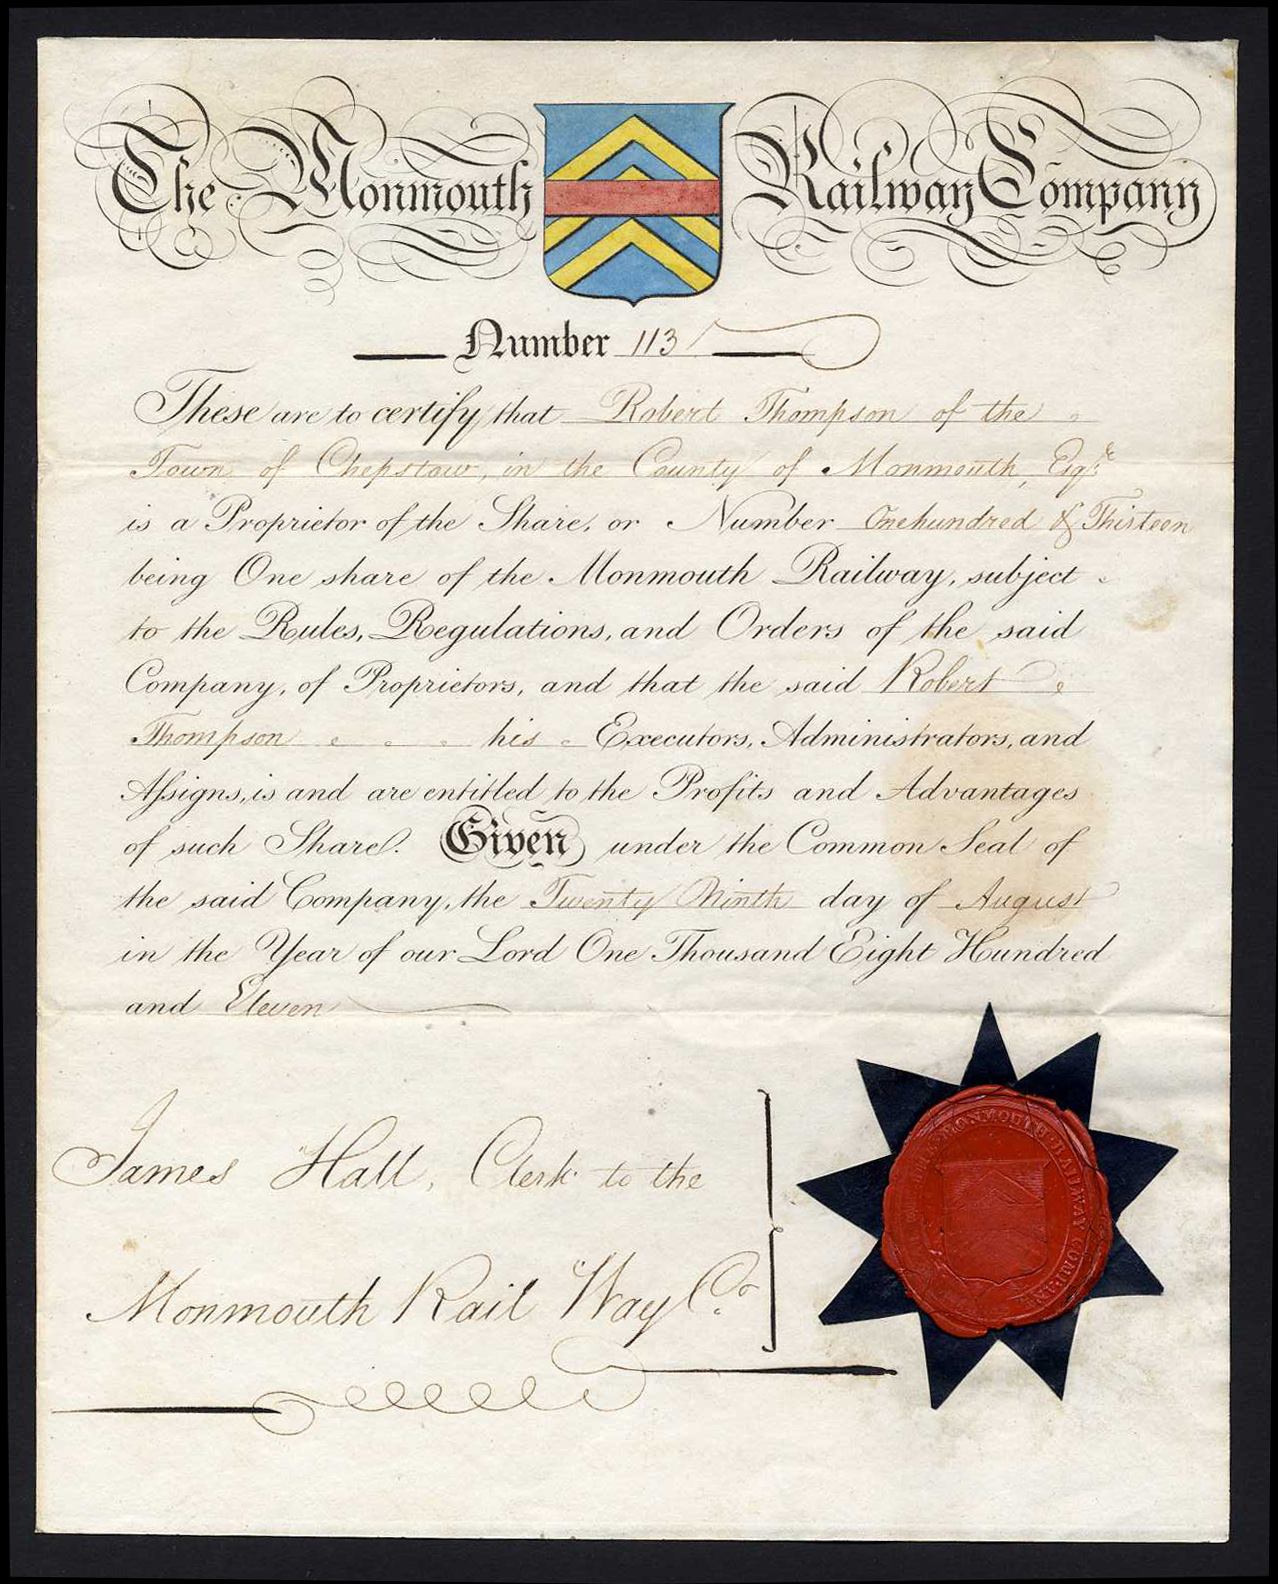 The Monmouth Railway Company
Number 113
These are to certify that Robert Thompson of the
Town of Chepstow, in the County of Monmouth, Esqre
is a Proprietor of the Share, or Number One hundred & Thirteen
being One share of the Monmouth Railway, subject
to the Rules, Regulations, and Orders of the said
Company, of Proprietors, and that the said Robert
Thompson his Executors, Administrators, and
Assigns, is and are entitled to the Profits and Advantages
of such Share. Given under the Common Seal of
the said Company, the Twenty Ninth day of August
in the Year of our Lord One Thousand Eight Hundred
and Eleven
James Hall, Clerk to the
Monmouth Rail Way Co.
MONMOUTH RAILWAY COMPANY